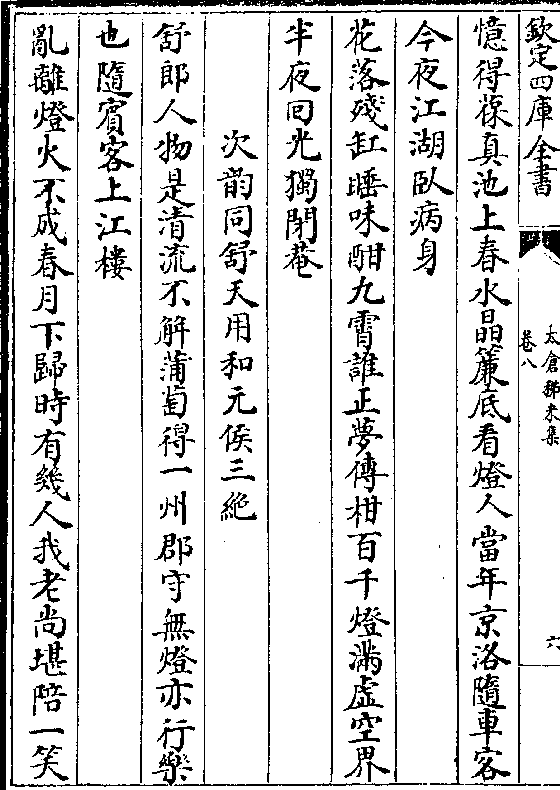 欽定四庫全書
太倉稊米集
卷八
六
憶得葆真池上春水晶簾底看燈人當年京洛隨車客
今夜江湖臥病身
花落殘缸睡味酣九霄誰正夢傳柑百千燈滿虛空界
半夜回光獨閉菴
次韵同舒天用和元侯三絶
舒郎人物是清流不解蒲萄得一州郡守無燈亦行樂
也隨賓客上江樓
亂離燈火不成春月下歸時有幾人我老尚堪陪一笑